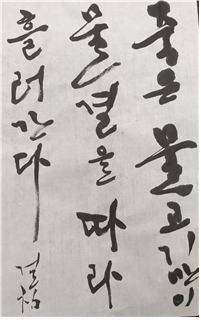 죽은 물고기만이
물결을 따라
흘러간다